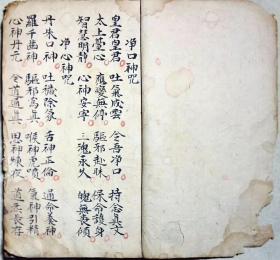 净口神咒
皇君皇君 吐氣成雲 令吾净口 持念真文
太上臺心 應變無停 驅邪赴昧 保命護身
智慧明静 心神安寧 三魂永久 魄無喪傾
净心神咒
丹朱口神 吐穢除氛 舌神正倫 通命養神
羅千齒神 驅邪寫真 喉神虎噴 氣神引精
心神丹元 令通真 思神煉液 道炁長存